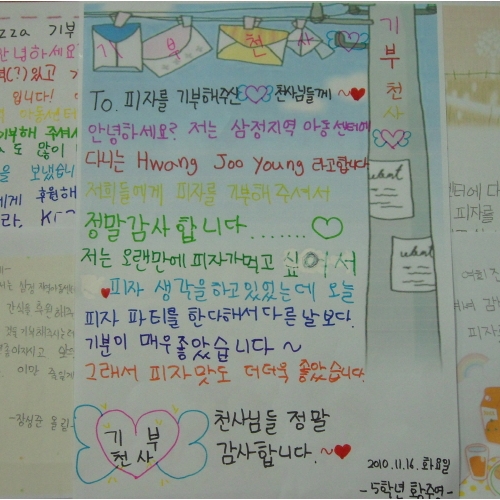 기부천사
To. 피자를 기부해주신 천사님들께 ~
안녕하세요? 저는 삼정지역 아동센터에
다니는 Hwang Joo Young 라고합니다
저희들에게 피자를 기부해 주셔서
정말감사 합니다.......
저는 오랜만에 피자가먹고 싶어서
피자 생각을하고있었는데 오늘
피자 파티를 한다해서 다른 날보다.
기분이 매우좋았습니다 ~
그래서 피자맛도 더더욱 좋았습니다.
기부
천사
천사님들 정말
감사합니다. ~
2010.11.16. 화요일
-5학년 황주영-
기부천사
want
want
zza 기부
안녕하세요
입니다!
도 많이
보냈습니
에게 후원해
간식을 후원해주
-장성준 올림-
피자를